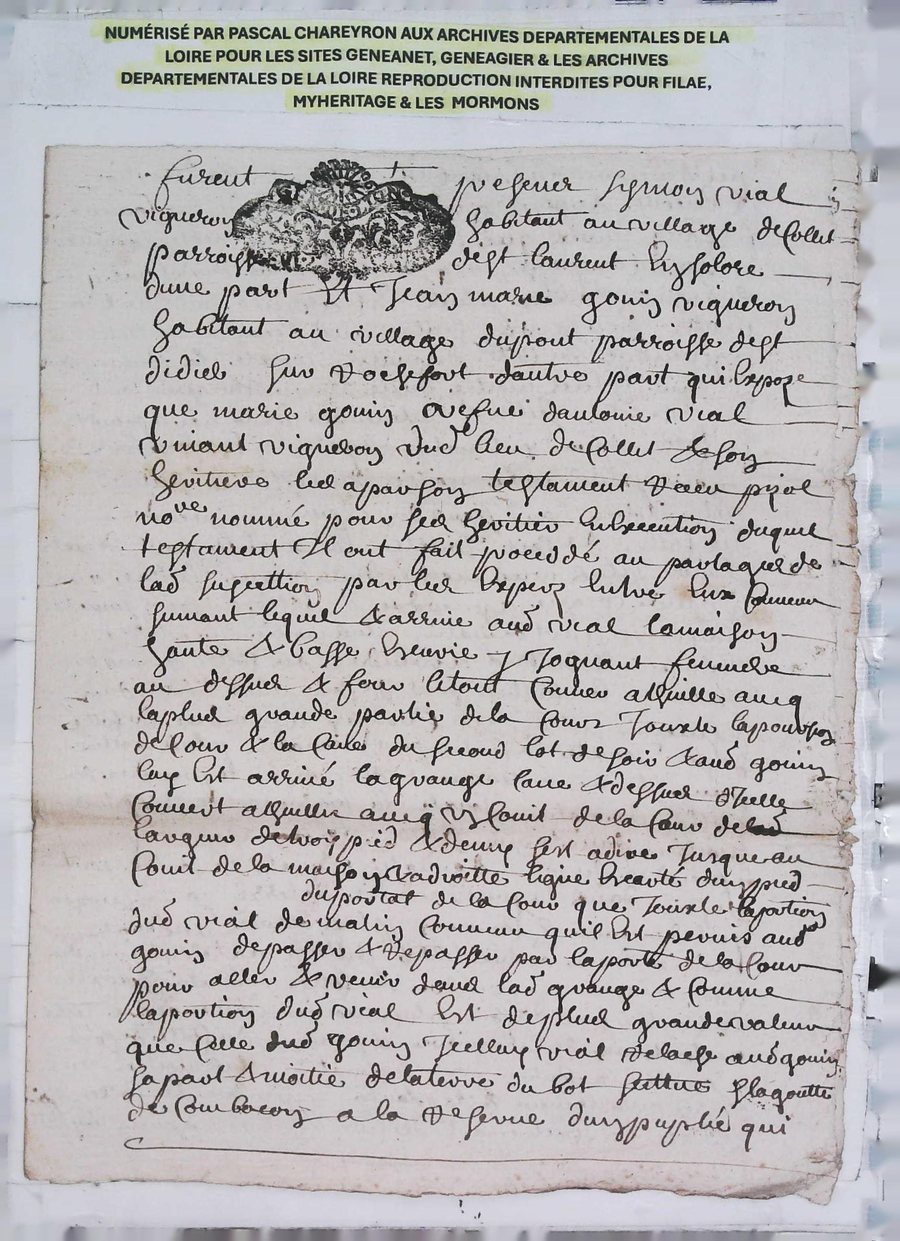 NUMÉRISÉ PAR PASCAL CHAREYRON AUX ARCHIVES DEPARTEMENTALES DE LA
LOIRE POUR LES SITES GENEANET, GENEAGIER & LES ARCHIVES
DEPARTEMENTALES DE LA LOIRE REPRODUCTION INTERDITES POUR FILAE,
MYHERITAGE & LES MORMONS
furent presener symon vial
vigneron habitant au village de Collet
parroisse de st laurent en solore
dune part Et Jean marie gouin vigneron
habitant au village dupont parroisse de st
didier sur Rochefort dautre part qui Expoze
que marie gouin vefue dantoine vial
viuant vigneron dud lieu de Collet & son
heritiere les a par son testament receu pizol
no.re nommé pour ses heritier En Execution duquel
testament Il ont fait procedé au partage de
lad par les Expers Entre Eux Conueneu
suiuant lequel Est arriue aud vial lamaison
haute & basse Escurie y Joignant
au dessus & four le tout Couuer a thuille aueq
la plus grande partie de la Cour Jouxte
de Cour & la Caue du second lot de soir & aud gouin
luy Est arriué la grange Caue & dessus d'Icelle
Couuert a thuilles aueq vn Couit de la Cour de
largeur de trois pied & demy sest adire Jusque au
Couit de la maison a droitte ligne dun pied
du portal de la Cour que Jouxte la portion
dud vial de matin Conuenu quil Est permis aud
gouin de passer & repasser par la porte de la Cour
pour aller & venir dans lad grange & Comme
la portion dud vial Est de plus grande valeur
que Celle dud gouin Icelluy vial relache aud gouin
sa part & moitie de la terre du bot
de Combacon a la Reserue dun qui